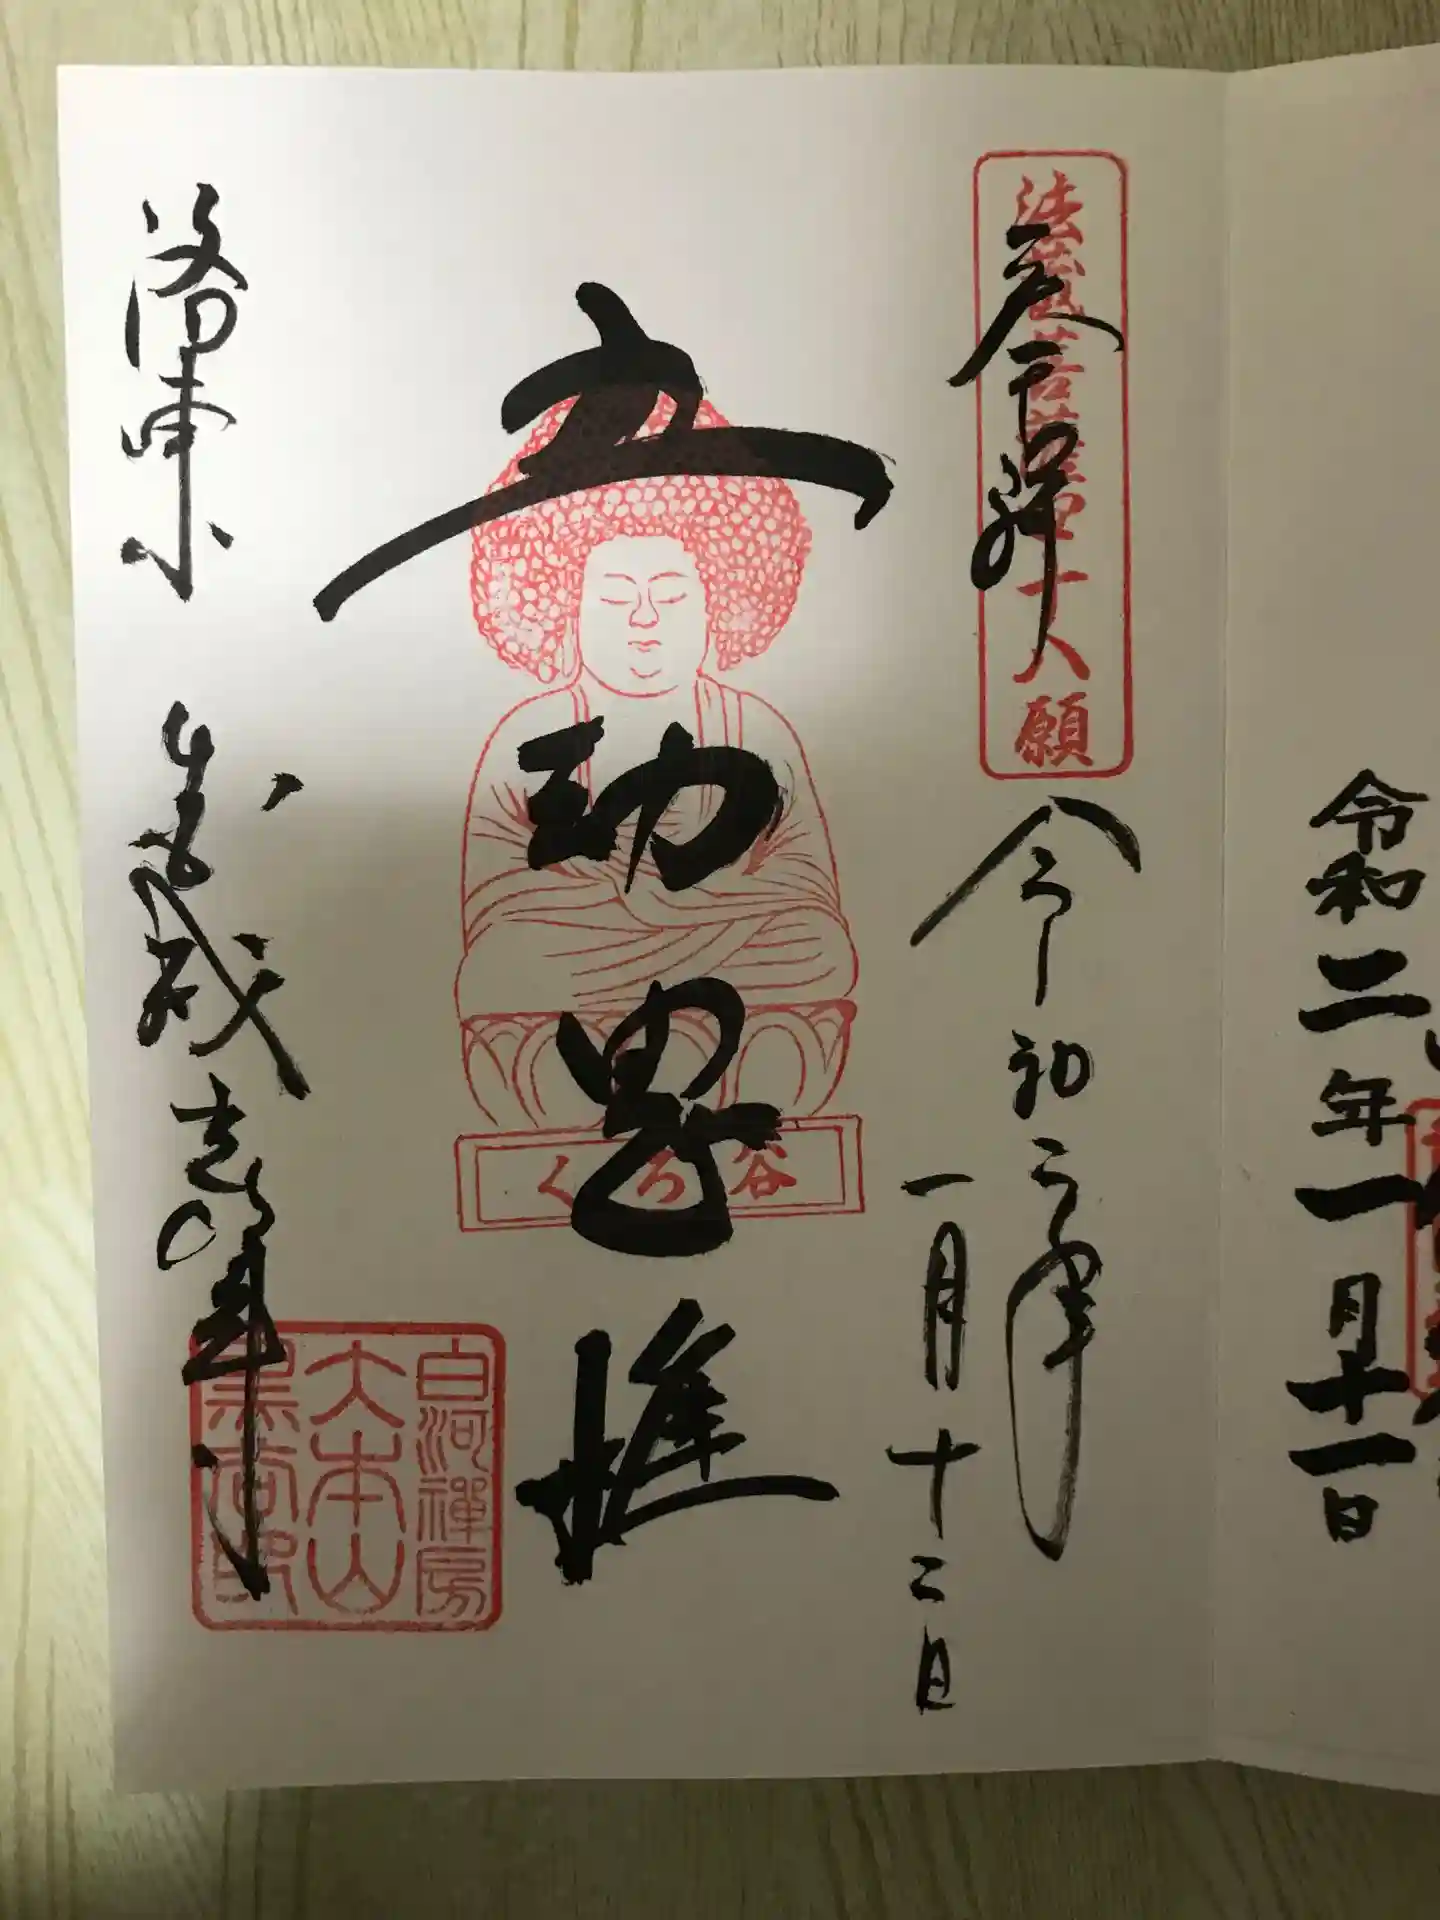 令和二年一月十一日
法蔵菩薩四十八願
奉拝
令和二年
一月十二日
五劫思惟
くろ谷
洛東
金戒光明寺
白河禪房
大本山
黒谷